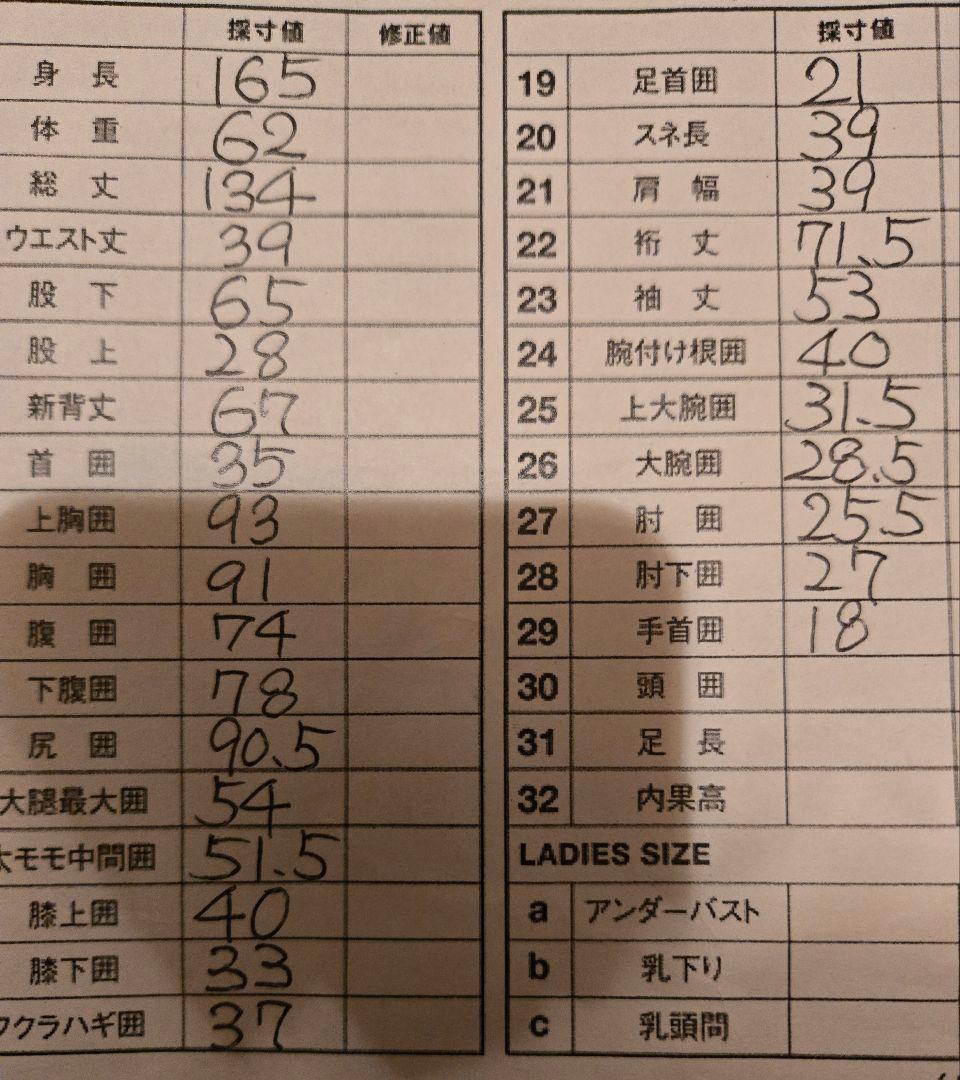 採寸値 修正値
身長 165
体重 62
総丈 134
ウエスト丈 39
股下 65
股上 28
新背丈 67
首囲 35
上胸囲 93
胸囲 91
腹囲 74
下腹囲 78
尻囲 90.5
大腿最大囲 54
太モモ中間囲 51.5
膝上囲 40
膝下囲 33
フクラハギ囲 37
採寸値
19 足首囲 21
20 スネ長 39
21 肩幅 39
22 裄丈 71.5
23 袖丈 53
24 腕付け根囲 40
25 上大腕囲 31.5
26 大腕囲 28.5
27 肘囲 25.5
28 肘下囲 27
29 手首囲 18
30 頭囲
31 足長
32 内果高
LADIES SIZE
a アンダーバスト
b 乳下り
c 乳頭間